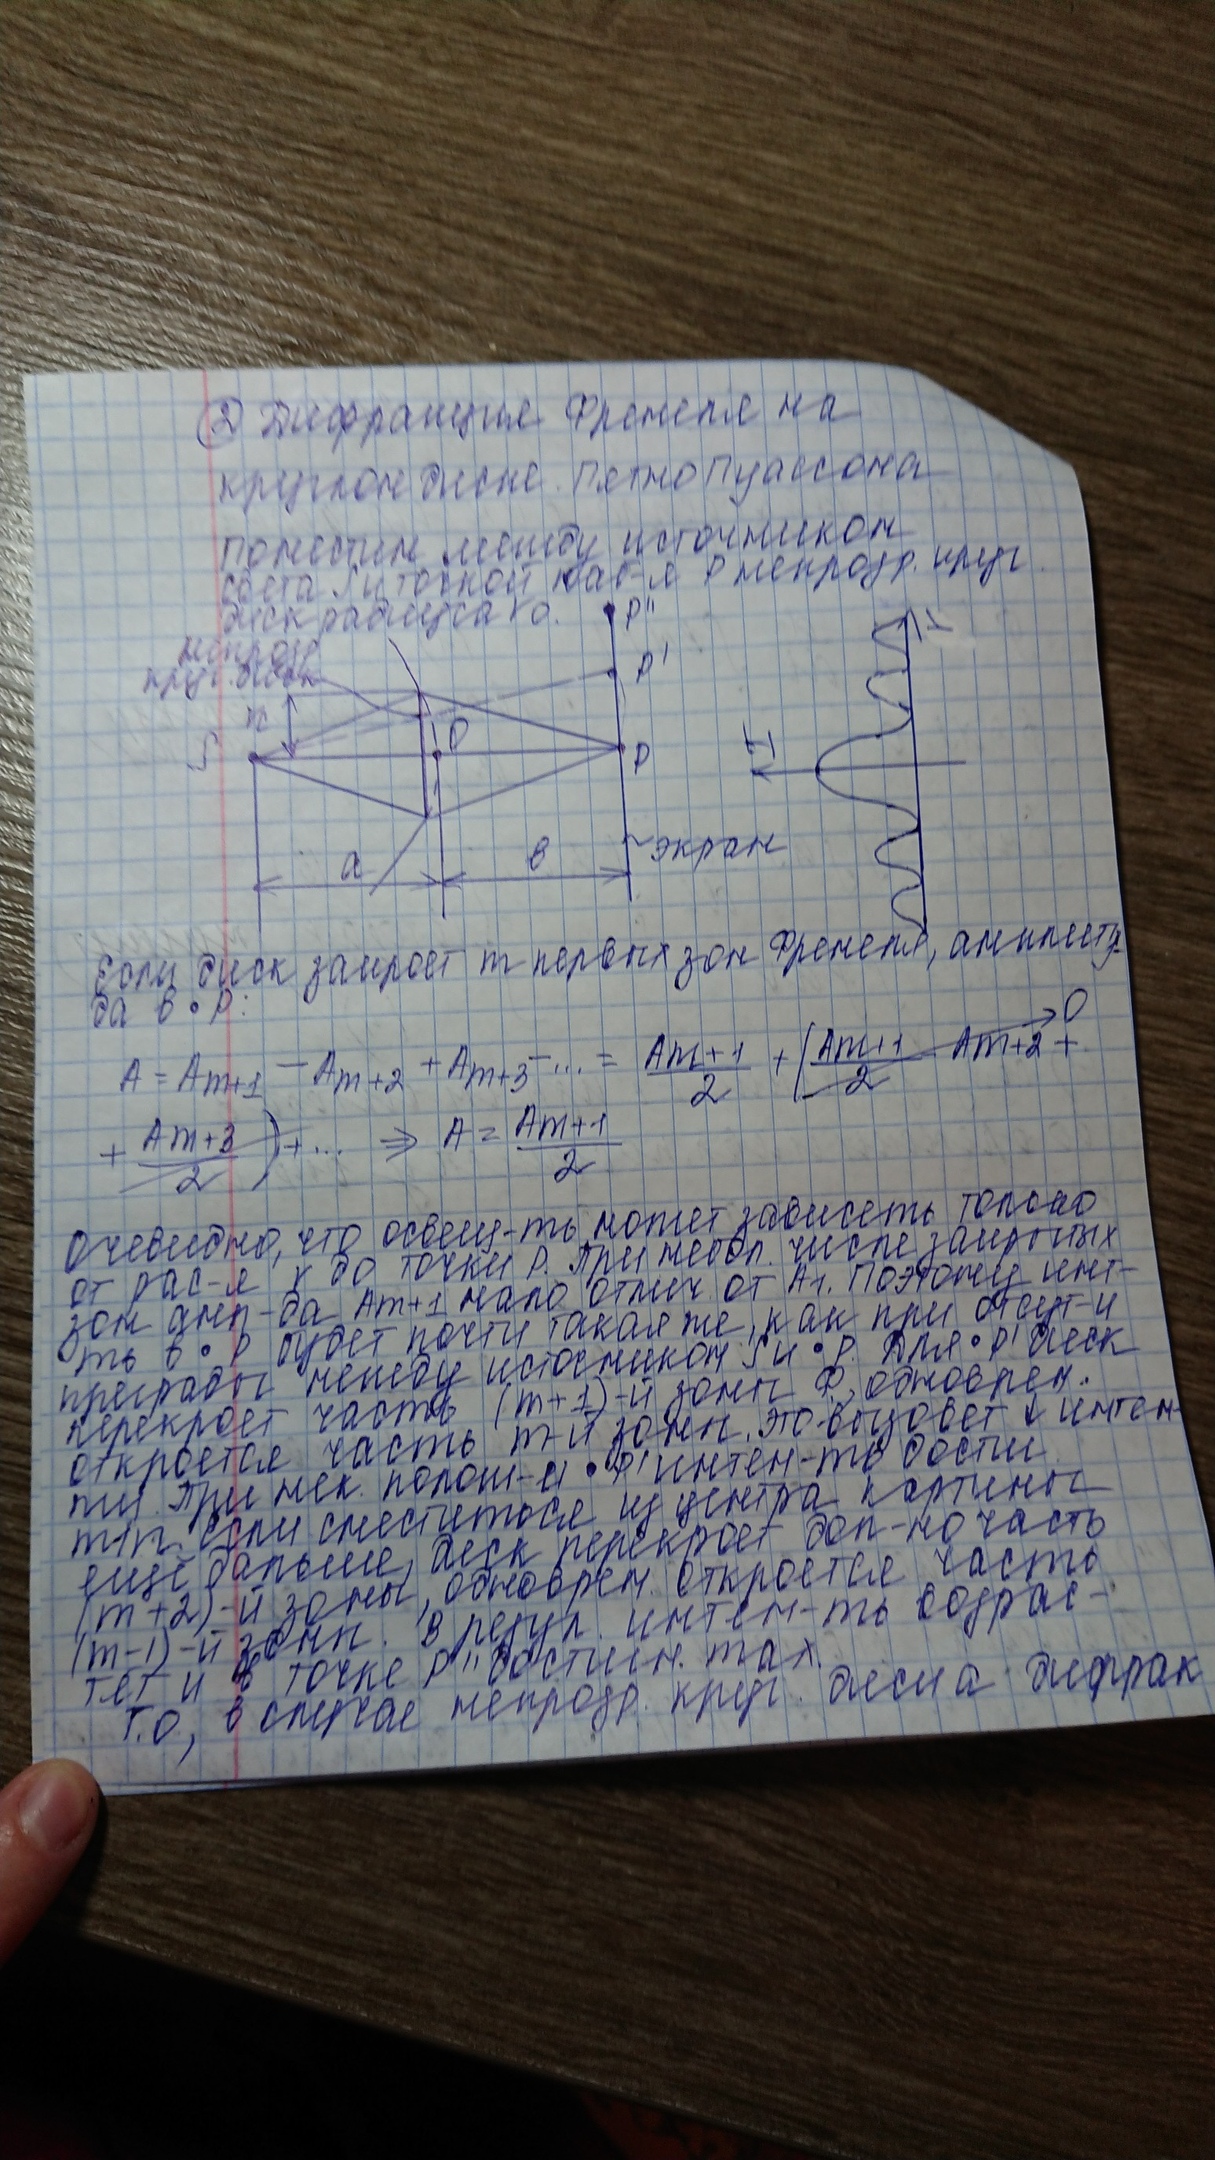 ② Дифракция Френеля на
круглом диске. Пятно Пуассона
Поместим между источником
света S и точкой наб-я P непрозр. круг.
диск радиуса r0.
P"
r
непрозр
круг. диск
P'
S
O
P
I
экран
a
b
Если диск закроет m первых зон Френеля, амплиту-
да в • P:
A = Am+1 - Am+2 + Am+3 - ... = Am+1/2 + (Am+1/2 - Am+2 + → 0
+ Am+3/2) + ... ⇒ A = Am+1/2
Очевидно, что освещ-ть может зависеть только
от рас-я r до точки P. При небол. числе закрытых
зон амп-да Am+1 мало отлич от A1. Поэтому инт-
ть в • P будет почти такая же, как при отсут-и
преграды между источником S и • P. Для • P' диск
перекроет часть (m+1)-й зоны Ф, одноврем.
откроется часть m-й зоны. Это вызовет ↓ интен-
ти. При нек. полож-и • P' интен-ть дости
min. Если сместиться из центра картины
ещё дальше, диск перекроет доп-но часть
(m+2)-й зоны, одноврем. откроется часть
(m-1)-й зоны. В резул. интен-ть возрас-
тет и в точке P" достигн. max.
Т.О, в случае непрозр. круг. диска дифрак